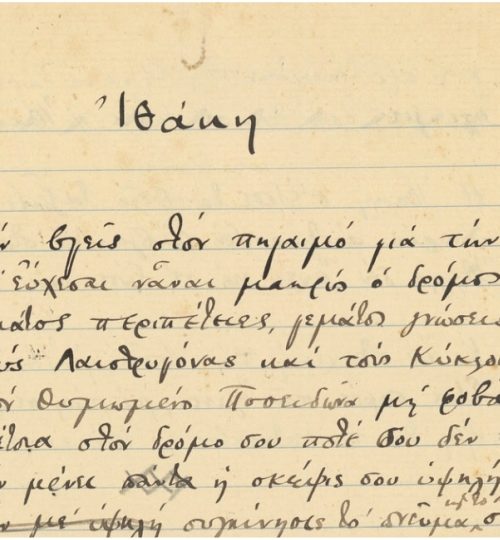 Ἰθάκη
βγεῖς στὸν πηγαιμὸ γιὰ τὴν
εὔχεσαι νἆναι μακρὺς ὁ δρόμος
περιπέτειες, γεμάτος γνώσεις
Λαιστρυγόνας καὶ τοὺς Κύκλο
θυμωμένο Ποσειδῶνα μὴ φοβᾶ
τέτοια στὸν δρόμο σου ποτέ σου δὲν
μένει πάντα ἡ σκέψις σου ὑψηλή
μὲ ὑψηλὴ συγκίνησις τὸ πνεῦμα καὶ τὸ σ